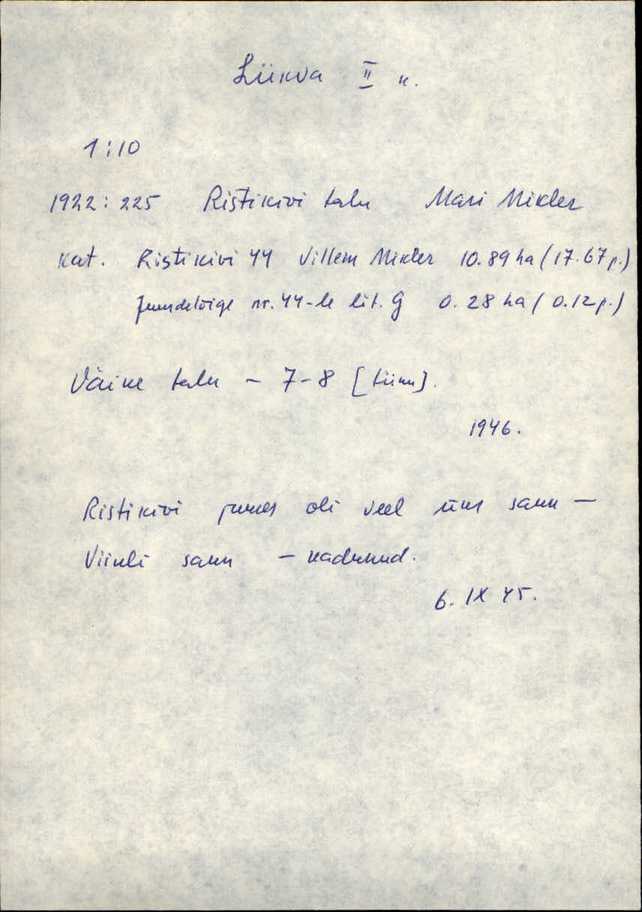 Liikva II k.
1:10
1922: 225 Ristikivi talu Mari Mikler
Kat. Ristikivi 44 Villem Mikler 10.89 ha (17.67 p.)
Juurdelõige nr. 44-le lit. G 0.28 ha (0.12 p.)
Väike talu – 7-8 [tiinu].
1946.
Ristikivi juures oli veel üks saun –
Viiuli saun – kadunud.
6. IX 45.